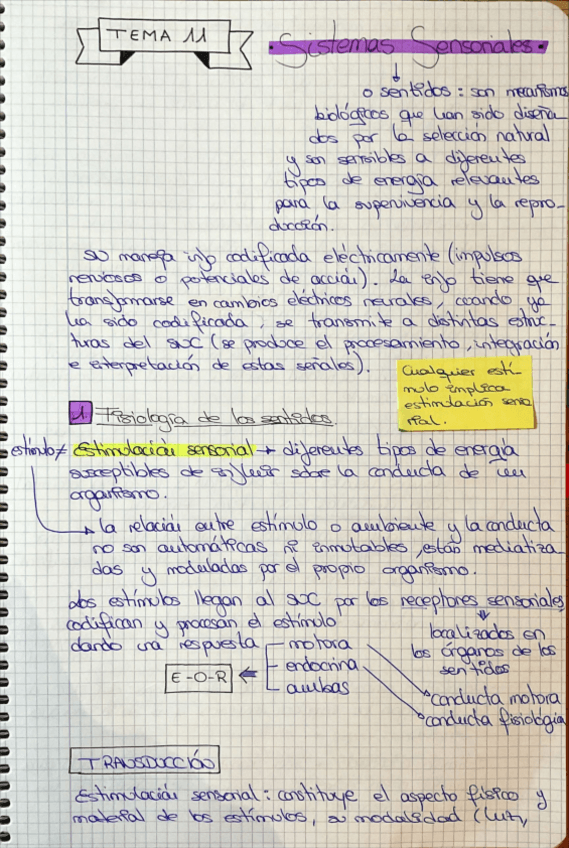 TEMA 11
Sistemas Sensoriales.
o sentidos: son mecanismos
biológicos que han sido diseña-
dos por la selección natural
y son sensibles a diferentes
tipos de energía relevantes
para la supervivencia y la repro-
ducción.
SN maneja info codificada eléctricamente (impulsos
nerviosos o potenciales de acción). La info tiene que
transformarse en cambios eléctricos neurales, cuando ya
ha sido codificada, se transmite a distintas estruc-
turas del SNC (se produce el procesamiento, integración
e interpretación de estas señales).
Cualquier estí-
mulo implica
estimulación senso
rial.
1. Fisiología de los sentidos.
estímulo ≠ Estimulación sensorial → diferentes tipos de energía
susceptibles de influir sobre la conducta de un
organismo.
La relación entre estímulo o ambiente y la conducta
no son automáticas ni inmutables, están mediatiza-
das y moduladas por el propio organismo.
Los estímulos llegan al SNC por los receptores sensoriales,
codifican y procesan el estímulo
dando una respuesta
motora
endocrina
ambas
E-O-R
localizados en
los órganos de los
sentidos
conducta motora
conducta fisiología
TRANSDUCCIÓN
Estimulación sensorial: constituye el aspecto físico y
material de los estímulos, su modalidad (luz,